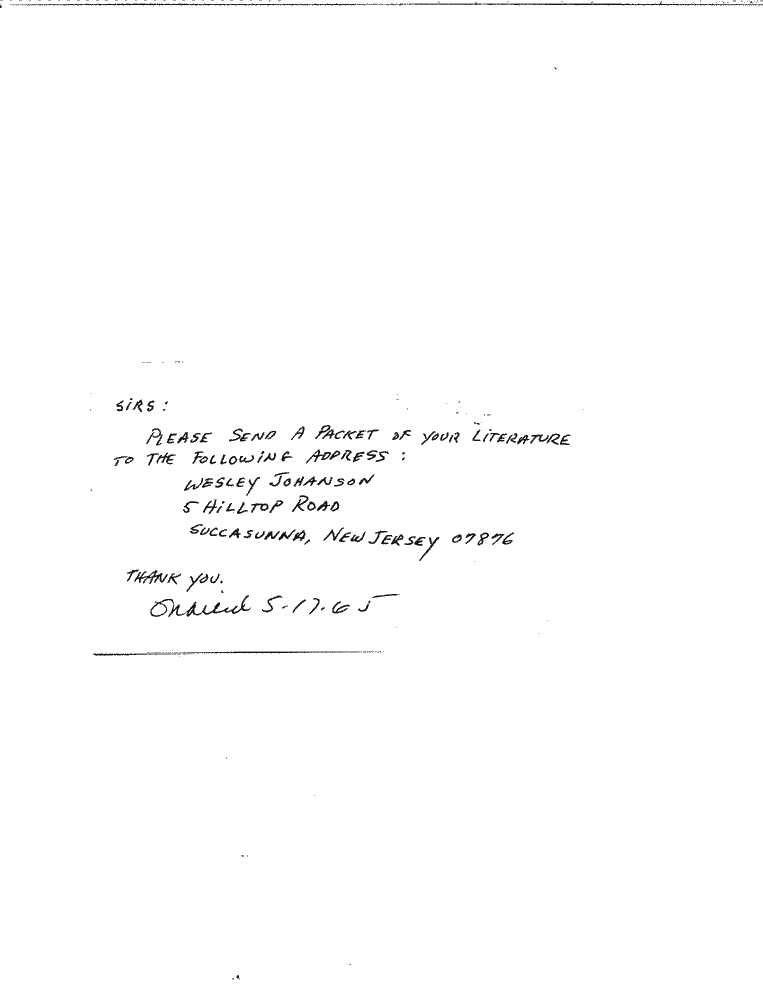 SIRS:
PLEASE SEND A PACKET OF YOUR LITERATURE
TO THE FOLLOWING ADDRESS:
WESLEY JOHANSON
5 HILLTOP ROAD
SUCCASUNNA, NEW JERSEY 07876
THANK YOU.
5-17-65